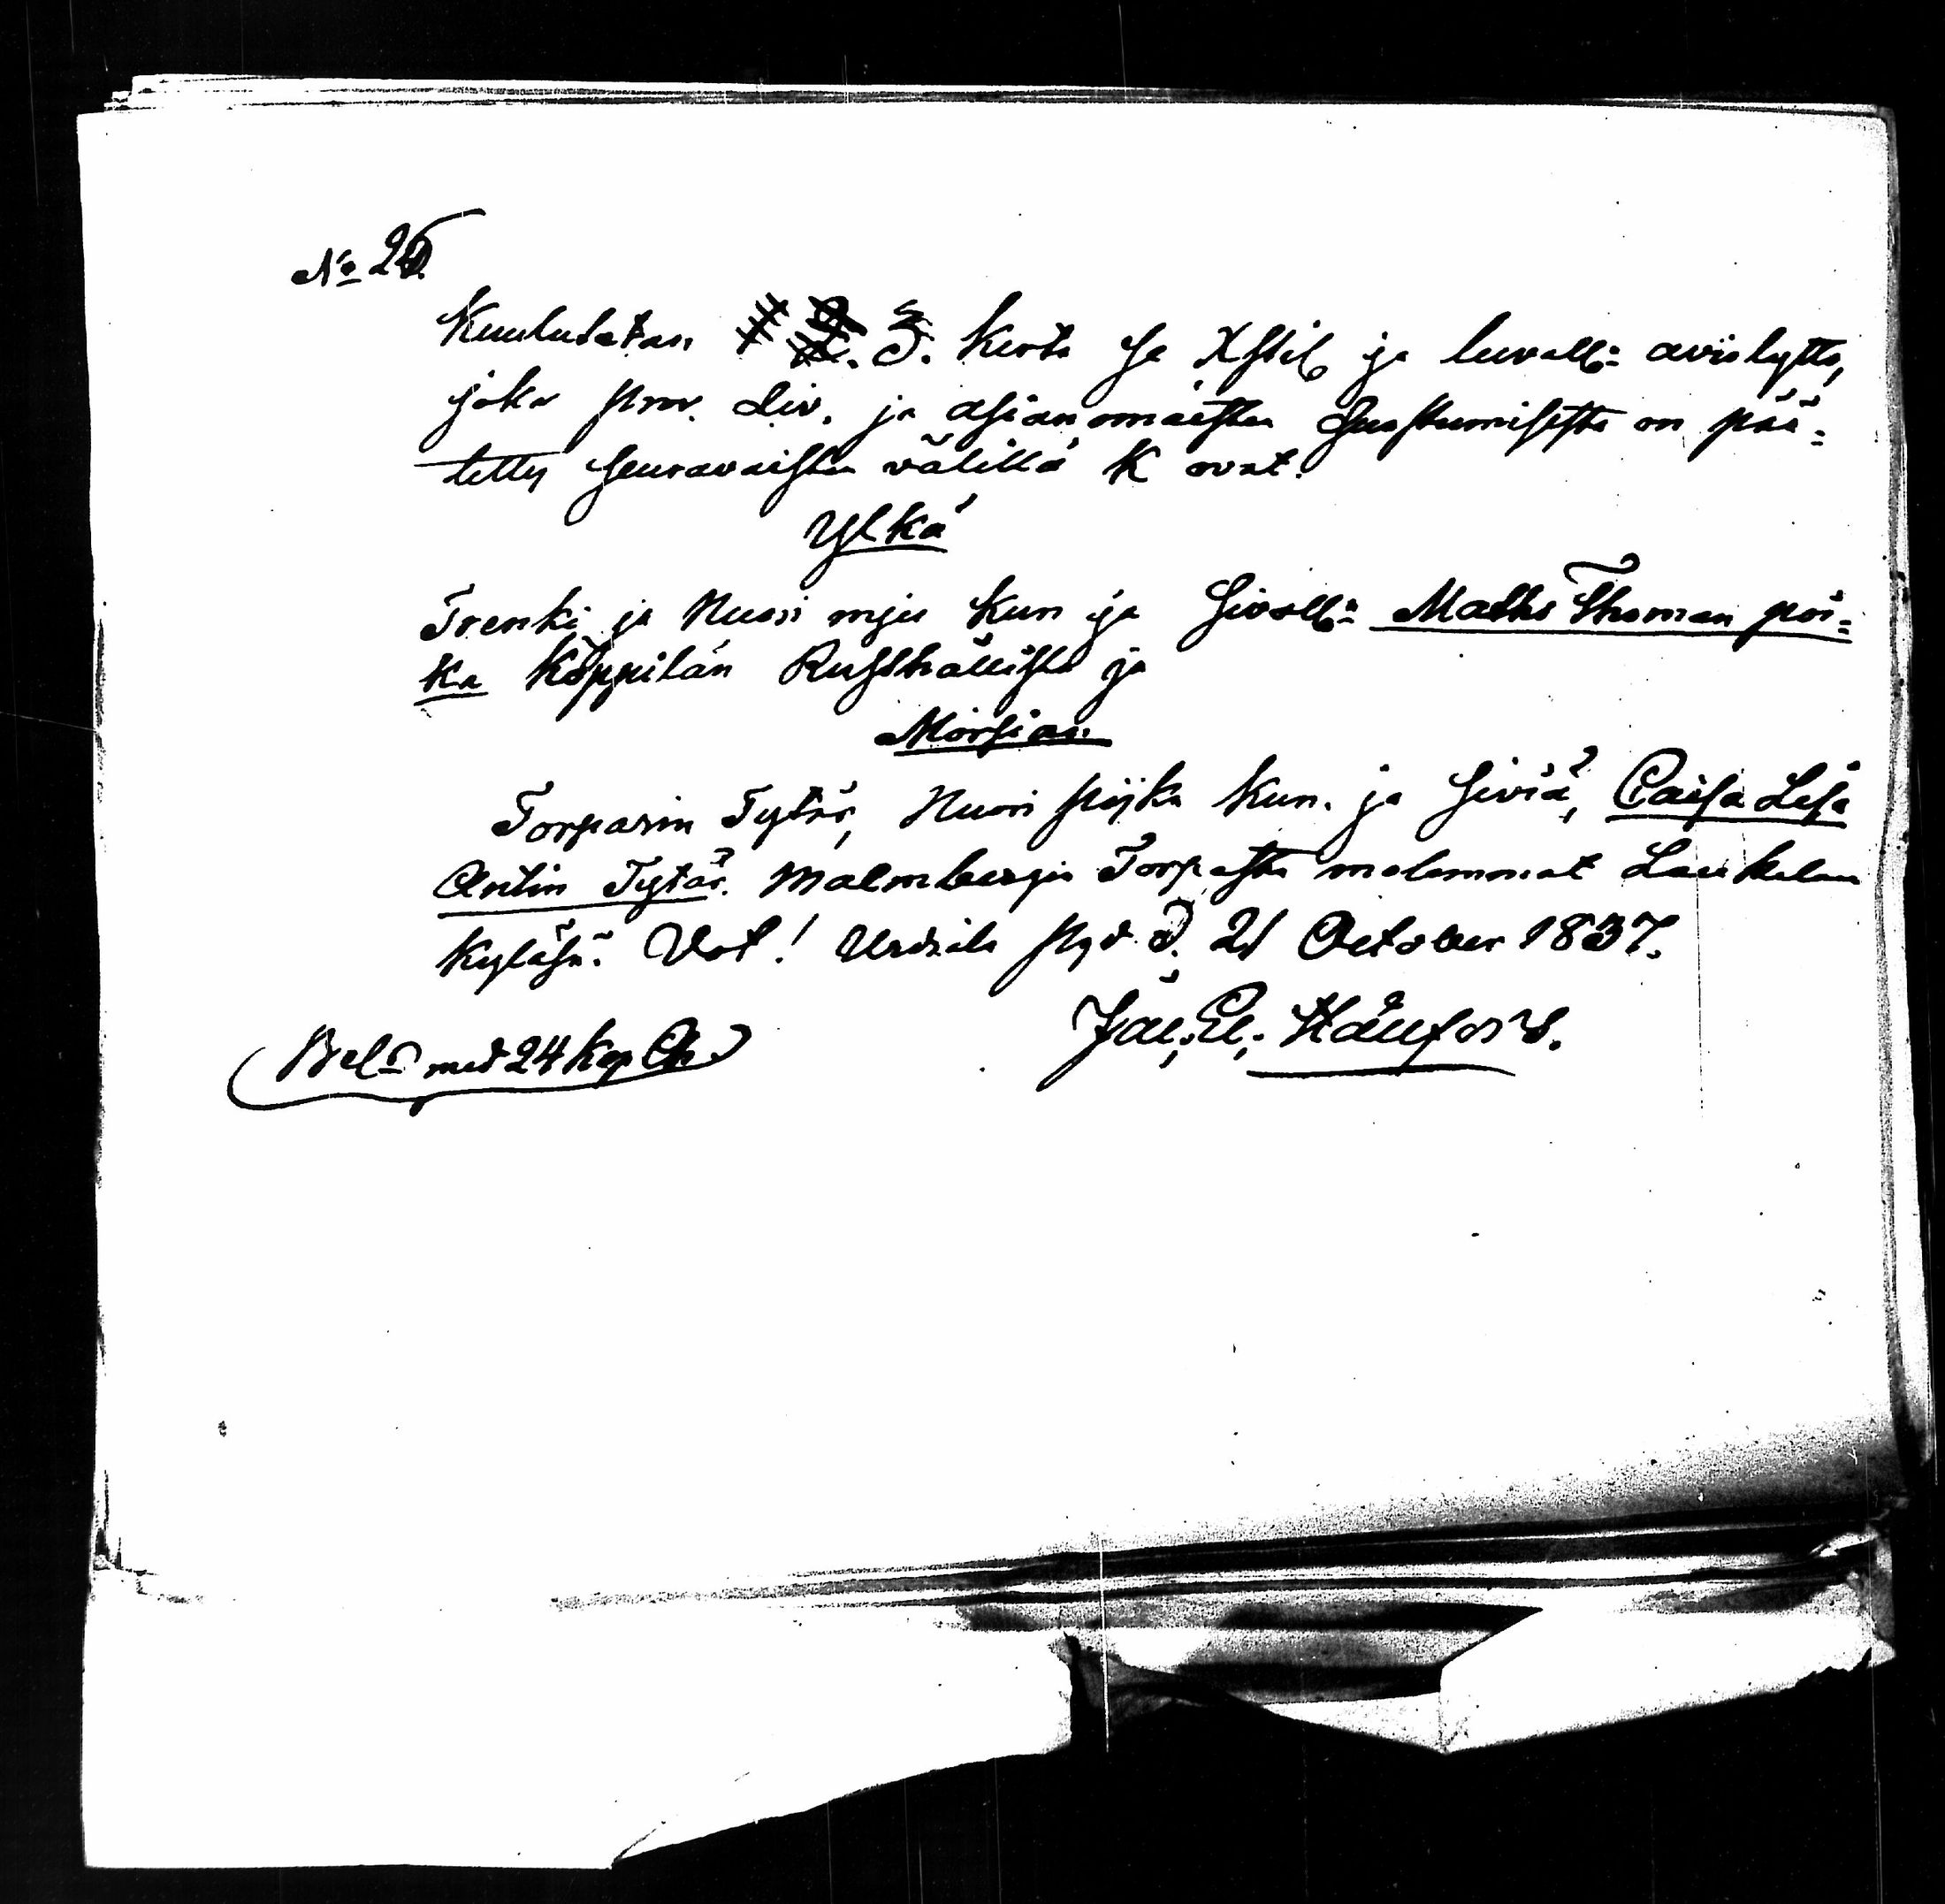 No 25
Kuulutetan 3. kerta se Xstil. ja luvall: avioliytto,
joka prov. div. ja asian omaisten suostumisesta on pää=
tetty seuravaisten välillä K ovat.
Ylkä
Trenki ja Nuori mjes kun ja Siväll: Matts Thoman poi=
ka Köppilän Rusthållista ja
Morsian
Torparin Tytär, Nuori pijka kun. ja Siviä, Caisa Lesa
Antin Tytär. Malmbergin Torpasta molemmat Laukelan
Kyläsä. Vot! Urdiala d. 21 October 1837.
Jac. El. Hällfors.
Bel. med 24 Kop